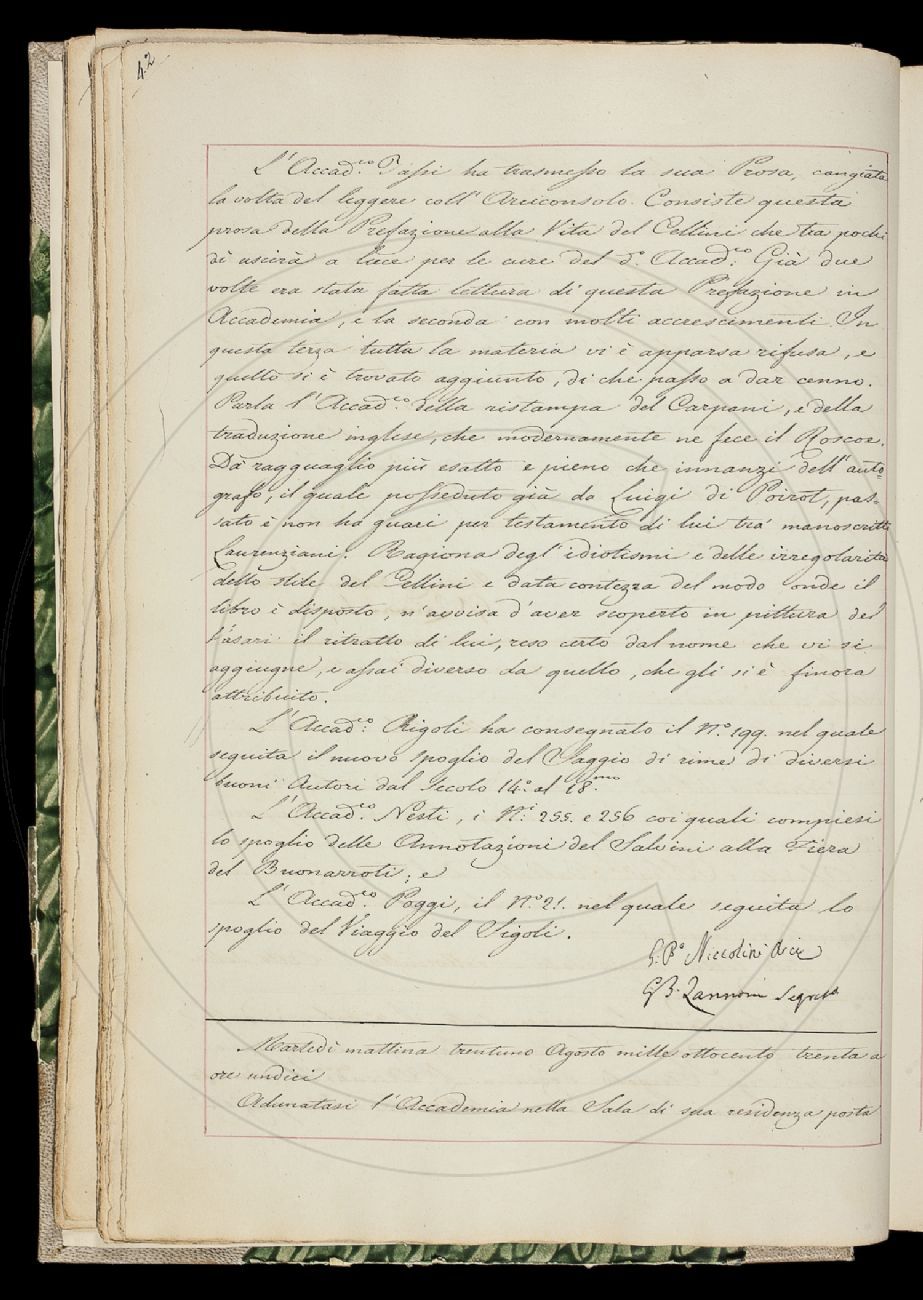 42
L'Accad.co Tassi ha trasmesso la sua Prosa, cangiata
la volta del leggere coll'Arciconsolo. Consiste questa
prosa della Prefazione alla Vita del Cellini che tra pochi
dì uscirà a luce per le cure del d.o Accad.co Già due
volte era stata fatta lettura di questa Prefazione in
Accademia, e la seconda con molti accrescimenti. In
questa terza tutta la materia vi è apparsa rifusa, e
quello si è trovato aggiunto, di che passo a dar cenno.
Parla l'Accad.co della ristampa del Carpani, e della
traduzione inglese, che modernamente ne fece il Roscoe.
Dà ragguaglio più esatto e pieno che innanzi dell'auto=
grafo, il quale posseduto già da Luigi di Poirot, pas=
sato è non ha guari per testamento di lui tra' manoscritti
Laurenziani. Ragiona degl'idiotismi e delle irregolarità
dello stile del Cellini e data contezza del modo onde il
libro è disposto, n'avvisa d'aver scoperto in pittura del
Vasari il ritratto di lui, reso certo dal nome che vi si
aggiugne, e assai diverso da quello, che gli si è finora
attribuito.
L'Accad.co Rigoli ha consegnato il N.o 199. nel quale
seguita il nuovo spoglio del Saggio di rime di diversi
buoni Autori dal Secolo 14.o al 18.mo
L'Accad.co Nesti, i N.i 255. e 256 coi quali compiesi
lo spoglio delle Annotazioni del Salvini alla Fiera
del Buonarroti; e
L'Accad.co Poggi, il N.o 21. nel quale seguita lo
spoglio del Viaggio del Sigoli.
G. B.a Niccolini Arcic
G B. Zannoni Segret.o
Martedì mattina trentuno Agosto mille ottocento trenta a
ore undici
Adunatasi l'Accademia nella Sala di sua residenza posta